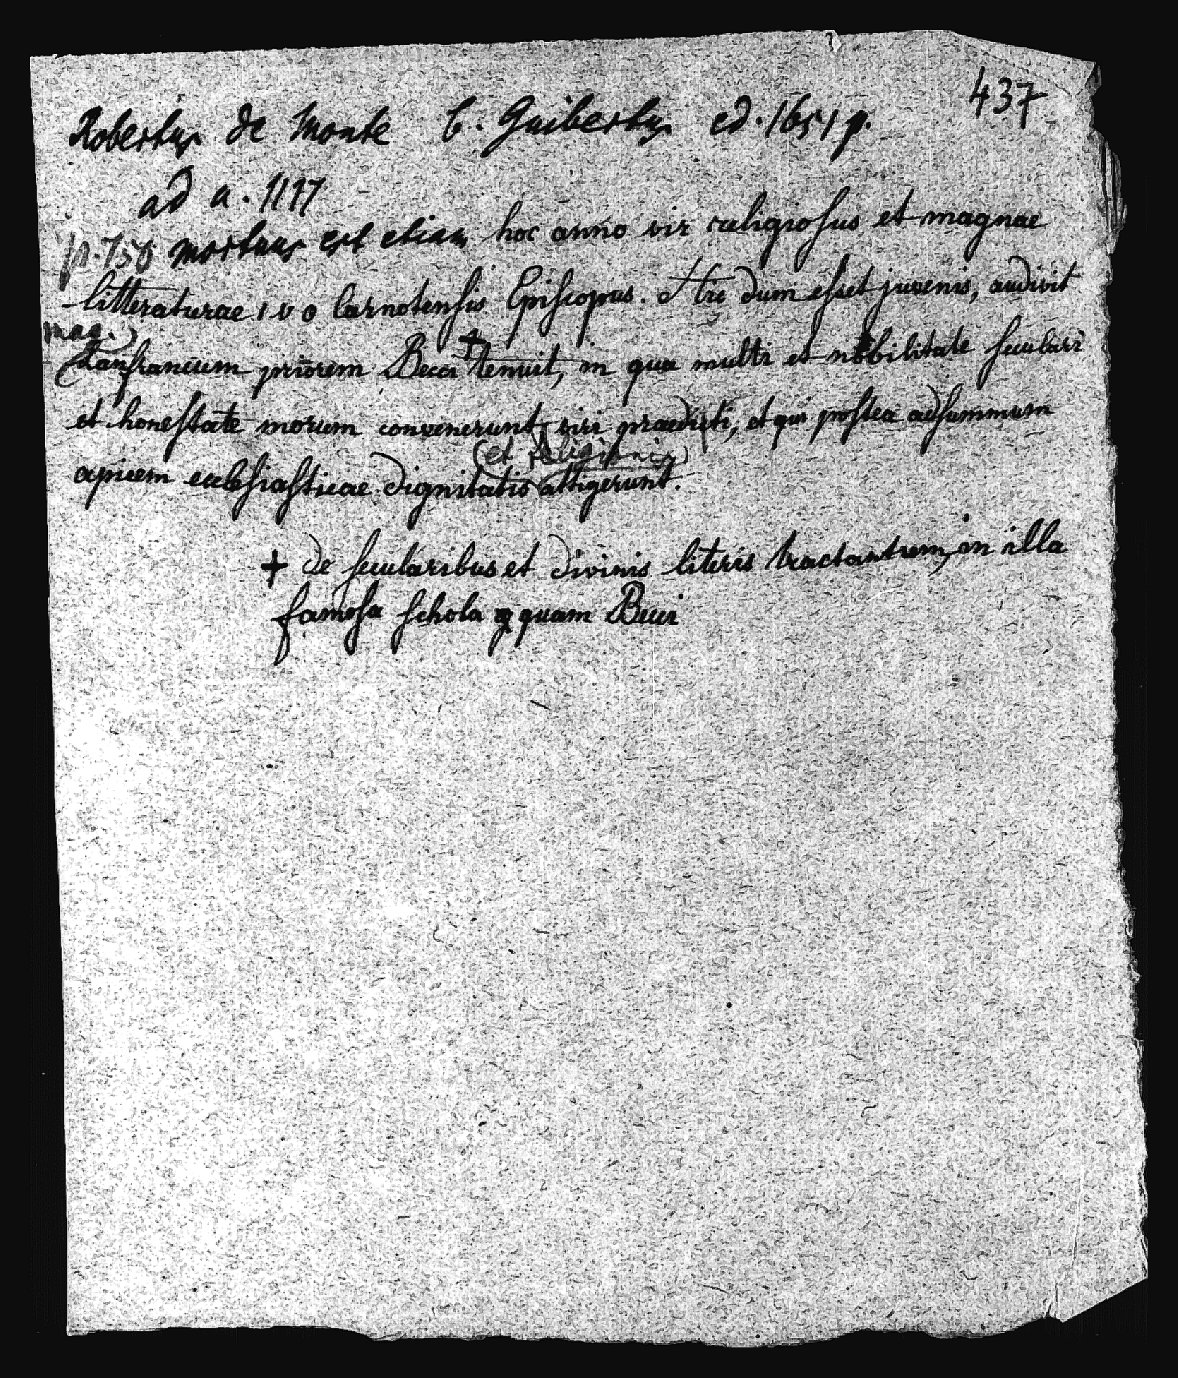 437
Robertus de Monte b. Guibertus ed. 1651 p.
ad a. 1117
p. 750 mortuus est etiam hoc anno vir religiosus et magnae
litteraturae ivo Carnotensis Episcopus. Hic dum esset juvenis, audivit
mag.
Lanfrancum priorem Becci + tenuit, in qua multi et nobilitate seculari
et honestate morum convenerunt viri praediti, et qui postea ad summum
(et religionis)
apicem ecclesiasticae dignitatis attigerunt.
+ de secularibus et divinis literis tractantem, in illa
famosa schola quam Becci